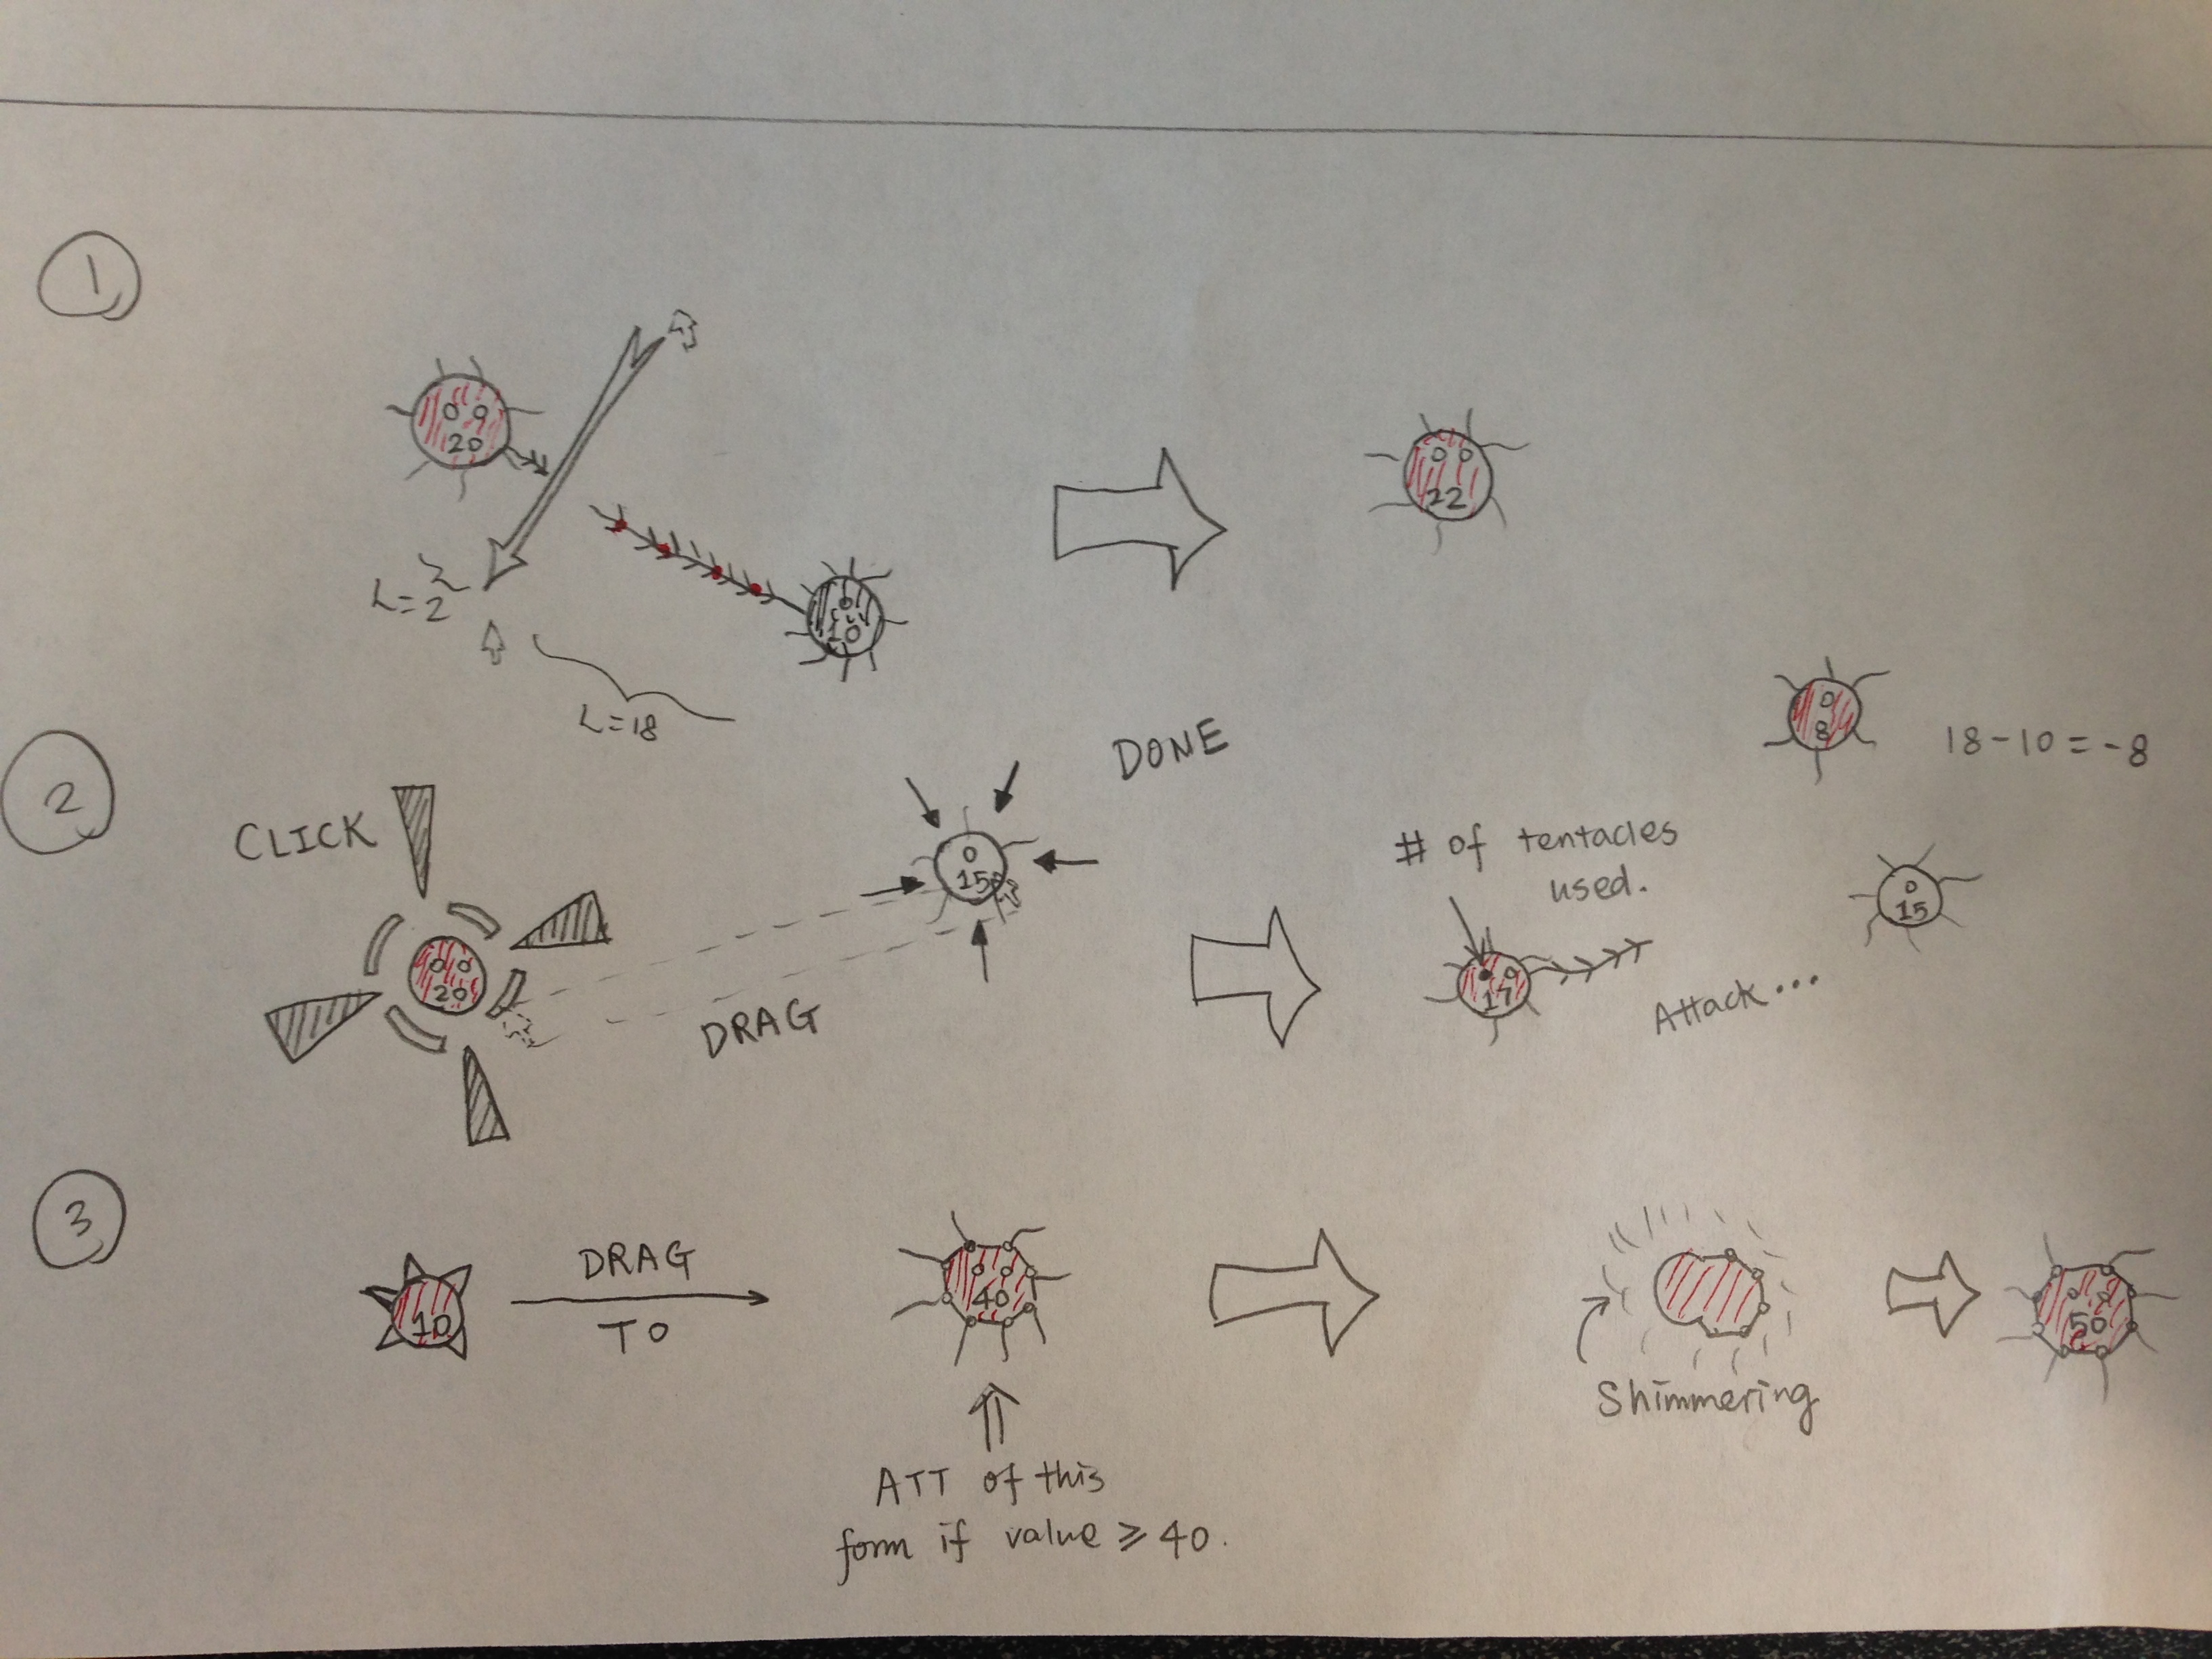 1
20
L=2
L=18
10
22
8
18-10=-8
2
CLICK
20
DRAG
15
DONE
# of tentacles
used.
Attack...
15
3
10
DRAG
TO
40
ATT of this
form if value ≥ 40.
Shimmering
50